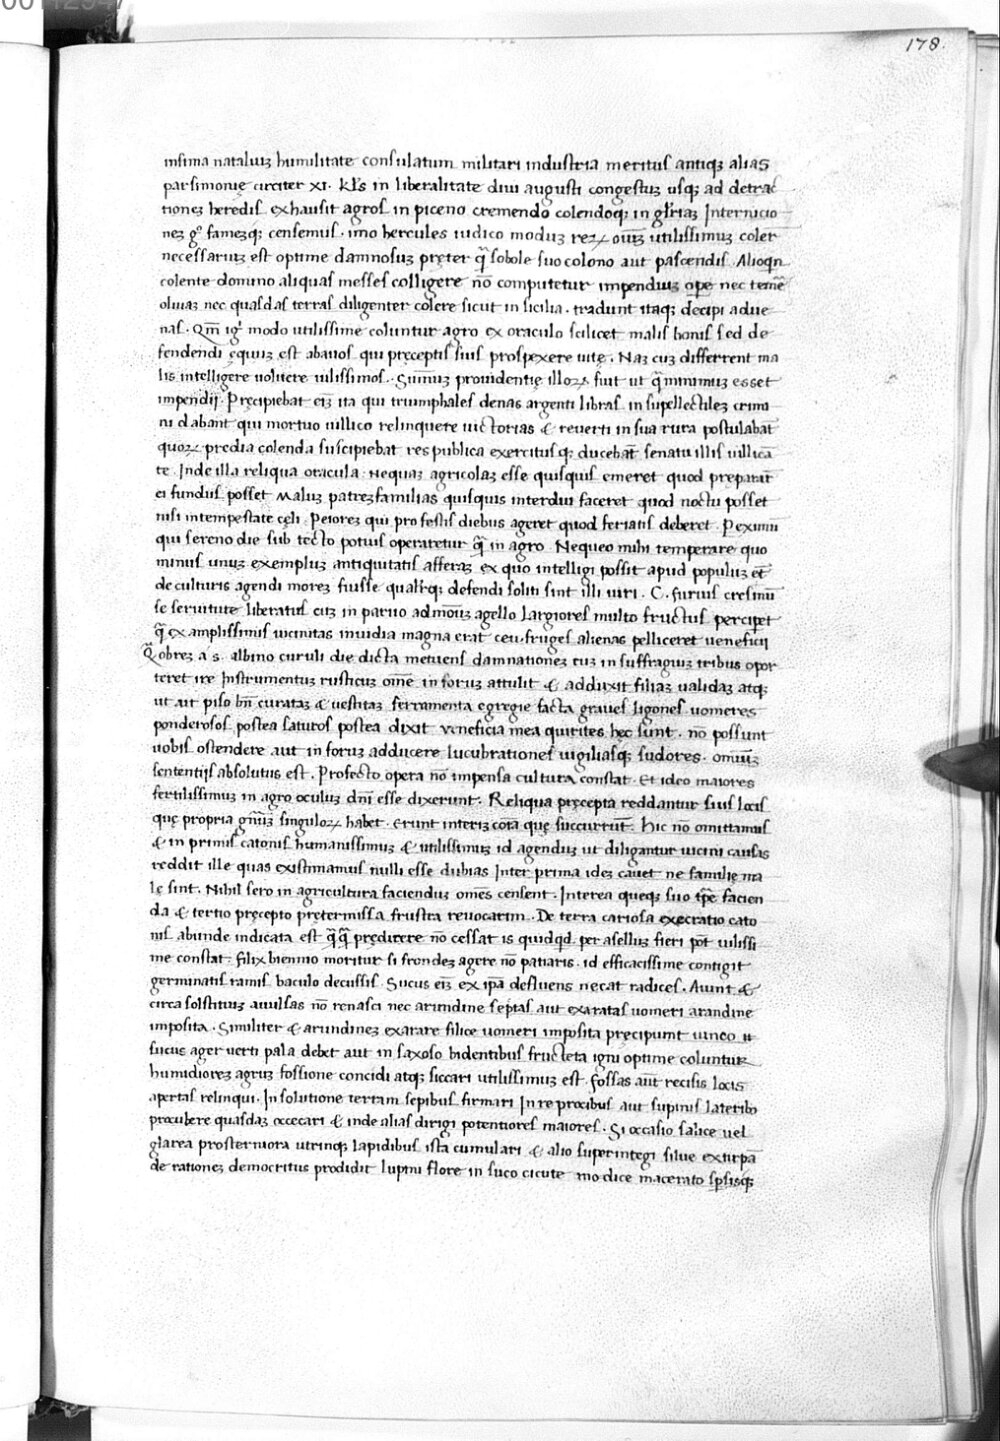 00112547
178.
infima nataluiȝ humilitate consulatum militari industria meritus antiqȝ alias
parsimonię circiter XI. kl̄s in liberalitate diui augusti congestuȝ usqȝ ad detrac
tioneȝ heredis exhausit agros in piceno cremendo colendoqȝ in gl̄riaȝ Internicio
neȝ gº fameȝqȝ censemus. imo hercules iudico moduȝ reꝝ oīuȝ utilissimuȝ coler
necessariuȝ est optime damnosuȝ pręter q̄ sobole suo colono aut pascendis. Alioqn
colente domino aliquas messes colligere nō computetur impendiuȝ ope nec temē
oliuaȝ nec quasdas terras diligenter colere sicut in sicilia. tradunt itaqȝ decipi adue
nas. Qm̄ igⁱ modo utilissime coluntur agro ex oraculo scilicet malis bonis sed de
fendendi ęquiȝ est abauos qui pręceptis suis prospexere uitę. Naȝ cuȝ differrent ma
lis intelligere uoluere uilissimos. Summuȝ prouidentię illoꝝ fuit ut q̄ minimuȝ esset
impendij. Pręcipiebat eiȝ ita qui triumphales denas argenti libras in supellectileȝ crimi
ni dabant qui mortuo uillico relinquere uictorias & reuerti in sua rura postulabāt
quoꝝ predia colenda suscipiebat res publica exercitusqȝ ducebāt senatu illis uillicā
te. Inde illa reliqua oracula. Nequaȝ agricolaȝ esse quisquis emeret quod pręparār̄
ei fundus posset Maluȝ patreȝfamilias quisquis interdiu faceret quod noctu posset
nisi intempestate cęli. Peioreȝ qui profestis diebus ageret quod feriatis deberet. Pexīmū
qui sereno die sub tecto potuis operatetur q̄ in agro. Nequeo mihi temperare quo
minus unuȝ exempluȝ antiquitatis afferaȝ ex quo intelligi possit apud populuȝ et̄
de culturis agendi moreȝ fuisse qualr̄qȝ defendi soliti sint illi uiri. C. furius cresimū
se seruitute liberatus cuȝ in paruo admōuȝ agello Largiores multo fructus perciperet
q̄ ex amplissimis uicinitas inuidia magna erat ceu fruges alienas pelliceret ueneficii
Q̄ obreȝ a s. albino curuli die dicta metuens damnationeȝ cuȝ in suffragiuȝ tribus opor
teret ire Instrumentuȝ rusticuȝ oīne in foruȝ attulit & adduxit filiaȝ ualidaȝ atqȝ
ut ait piso bn̄ curataȝ & uestitaȝ ferramenta egregie facta graues ligones uomeres
ponderosos postea saturos postea dixit ueneficia mea quirites hęc sunt. nō possunt
uobis ostendere aut in foruȝ adducere lucubrationes uigiliasqȝ sudores. omīuȝ
sententijs absolutus est. Profecto opera nō impensa cultura constat. Et ideo maiores
fertilissimuȝ in agro oculuȝ dn̄i esse dixerunt. Reliqua pręcepta reddantur suis locis
quę propria gn̄nuȝ singuloꝝ habet. erunt interiȝ cōia quę succurrūt. hic nō omittamus
& in primis catonis humanissimuȝ & utilissimuȝ id agenduȝ ut diligantur uicini causas
reddit ille quas existimamus nulli esse dubias Inter prima ideȝ cauet ne familię ma
lę sint. Nihil sero in agricultura faciendus omēs censent. Interea queqȝ suo tp̄e facien
da & tertio pręcepto prętermissa frustra reuocarim. De terra cariosa execratio cato
nis abunde indicata est q̄q̄ prędicere nō cessat is quidqd per asellus fieri pōt uilissi
me constat. filix biennio moritur si frondeȝ agere nō patiaris. id efficacissime contigit
germinatis ramis baculo decussis. Sucus eiȝ ex ip̄a defluens necat radices. Aiunt &
circa solstitiuȝ auulsas nō renasci nec arundine septas aut exaratas uomeri arandine
imposita. Similiter & arundineȝ exarare filice uomeri imposita pręcipunt iunco u
sucus ager uerti pala debet aut in saxoso bidentibus fructeta igni optime coluntur
humidioreȝ agruȝ fossione concidi atqȝ siccari utilissimuȝ est. fossas aūt recisis locis
apertas relinqui. In solutione terram sepibus firmari In re procibus aut supinis lateribo
procubere quasdaȝ occecari & inde alias dirigi potentiores maiores. Si occasio salice uel
glarea prosterniora utrinqȝ lapidibus ista cumulari & alio superintegi silue extirpā
de rationeȝ democritus prodidit lupini flore in suco cicute modice macerato sp̄sisqȝ